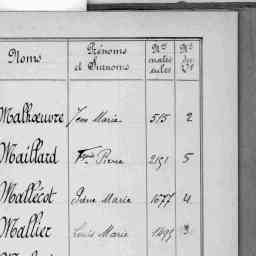 Noms Prénoms et Surnoms Nos matricules Nos du
Malhœuvre Jean Marie 515 2
Maillard Pierre 2191 5
Mallécot Pierre Marie 1677 4
Mallier Louis Marie 1495 3